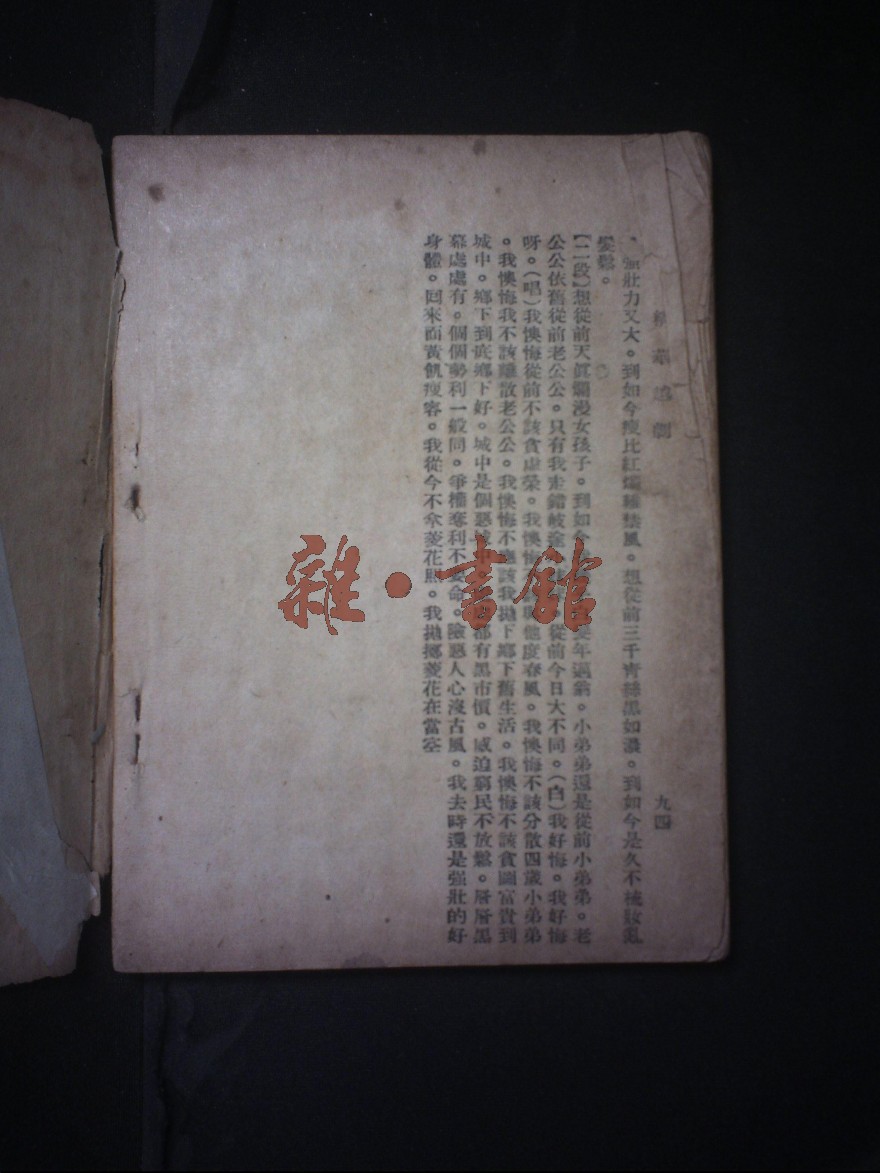 越劇
九四
强壯力又大。到如今瘦比紅燭難禁風。想從前三千青絲黑如漆。到如今是久不梳妝
髮鬆。
【二段】想從前天眞爛漫女孩子。到如今年邁翁。小弟弟還是從前小弟弟。老
公公依舊從前老公公。只有我走錯岐途從前今日大不同。(白)我好悔。我好悔
呀。(唱)我懊悔從前不該貪虛榮。我懊悔度春風。我懊悔不該分散四歲小弟弟
。我懊悔我不該離散老公公。我懊悔不應該我抛下鄉下舊生活。我懊悔不該貪圖富貴到
城中。鄉下到底鄉下好。城中是個惡都有黑市價。威迫窮民不放鬆。層層黑
幕處處有。個個勢利一般同。爭權奪利不要命。險惡人心沒古風。我去時還是强壯的好
身體。回來面黃飢瘦容。我從今不拿菱花照。我抛擲菱花在當空
雜·書館